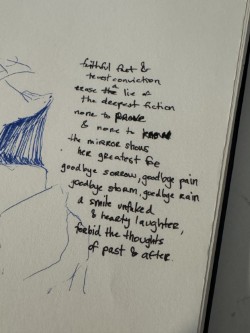 faithful fact &
truest conviction
erase the lie of
the deepest fiction
none to prove
& none to know
the mirror shows
her greatest foe
goodbye sorrow, goodbye pain
goodbye storm, goodbye rain
a smile unfaked
& hearty laughter,
forbid the thoughts
of past & after.